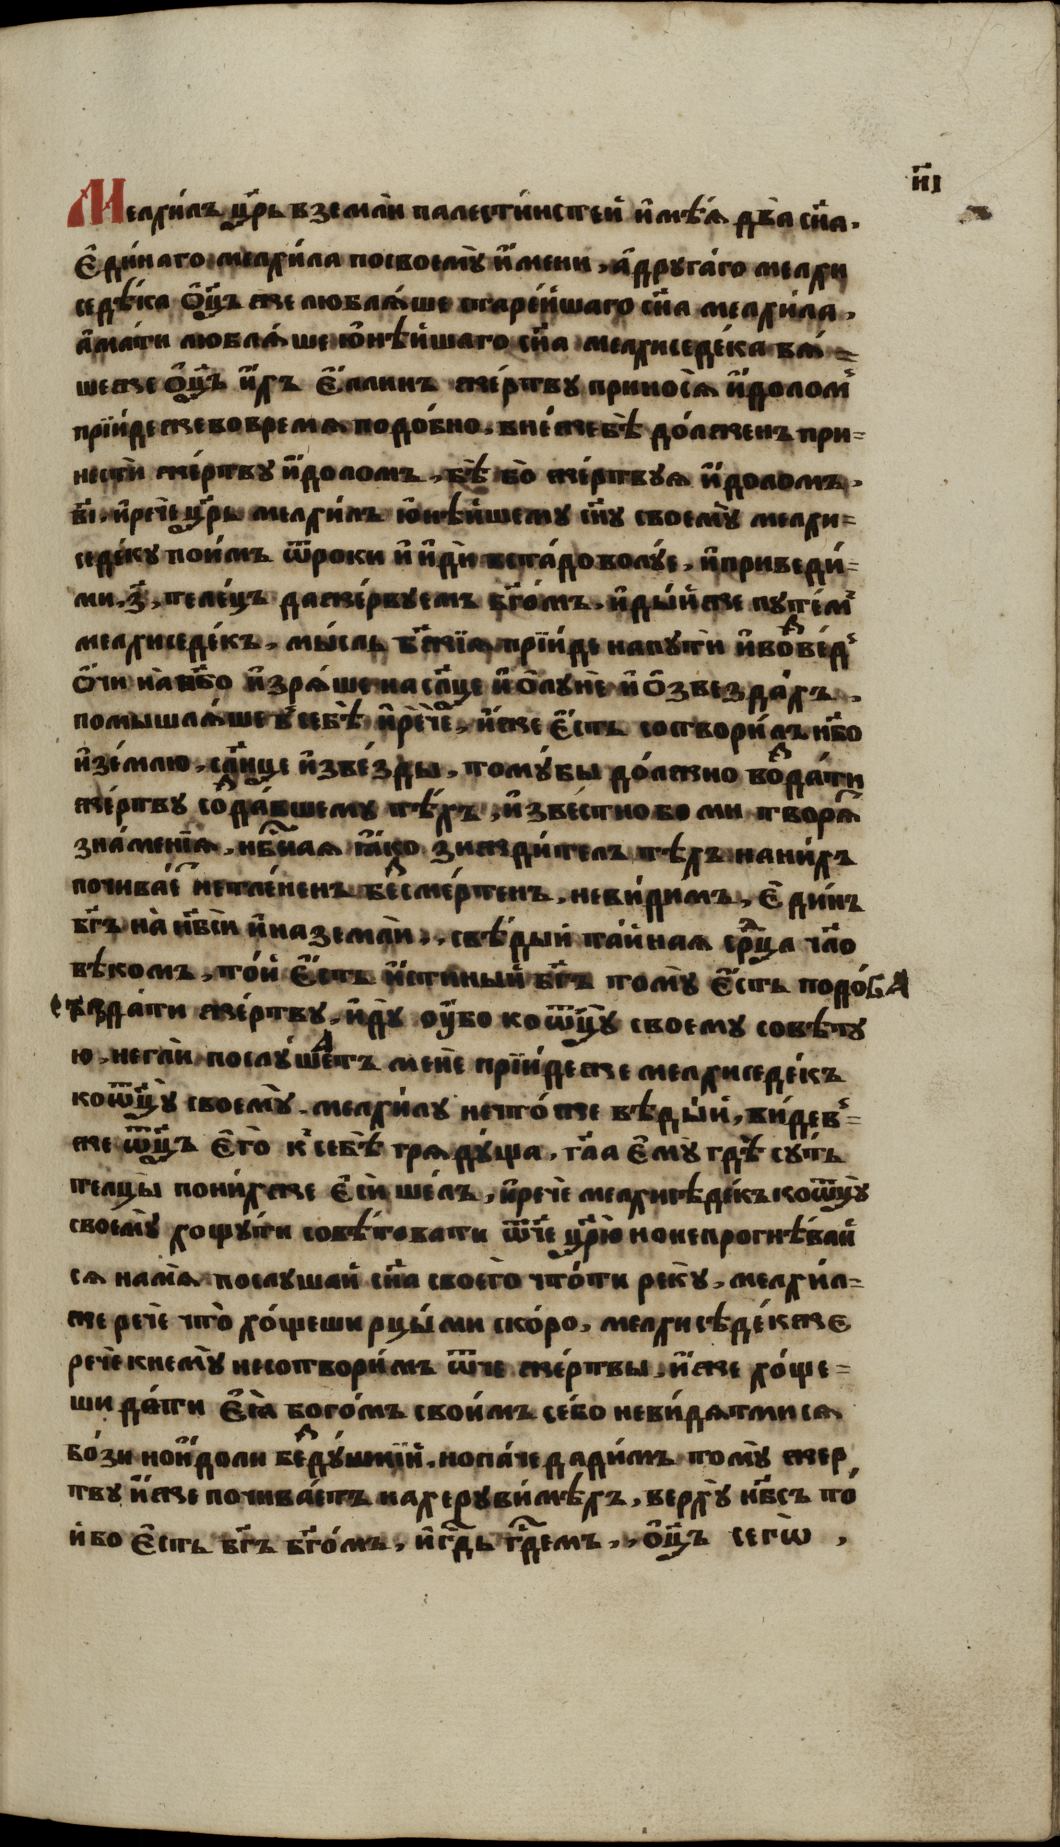 и҃і
Мелхи́лъ цр҃ь в земли̇ палести́нстей и҆мѣ́ѧ два̀ сн҃а.
Е҆ди́наго мелхи́ла посвоемꙋ̀ и҆́мени, а҆дрꙋга́го мелхи
седѣ́ка ѻ҆ц҃ъ же любѧ́ше старе́йшаго сн҃а мелхи́ла,
а҆ма́ти люблѧ́ше ю҆нѣ́йшаго сн҃а мелхиседе́ка бѧ́=
шеже ѻ҆ц҃ъ и҆́хъ е҆́ллинъ же́ртвꙋ приносѧ̀ и҆́доломъ
прїи́де же во времѧ подо́бно, в не́же бѣ̀ до́лженъ при=
нести̇ же́ртвꙋ и҆́доломъ, бѣ̀ бо̀ же́ртвꙋѧ и҆́доломъ.
в҃і. и҆рече̇ цр҃ь мелхи́лъ ю҆нѣ́йшемꙋ сн҃ꙋ своемꙋ̀ мелхи=
седе́кꙋ пои́мъ ѿроки и҆ и҆ди̇ вста́до волꙋ́е, и҆приведи́=
ми, з҃, теле́цъ даже́рвꙋемъ бг҃о́мъ. и҆ды́йже пꙋте́мъ
мелхиседе́къ, мы́сль бж҃їѧ прїи́де напꙋти̇ и҆возве́дъ
ѻ҆́чи нан҃бо и҆зрѧ́ше на сл҃нце и҆ ѻ҆лꙋнѐ и҆ ѻ҆звезда́хъ.
помышлѧ́ше в себѣ̀ и҆рече̇, и҆́же е҆́сть сотвори́лъ н҃бо
и҆зе́млю, сл҃нце и҆звѣ́зды, томꙋ́бы до́лжно возда́ти
же́ртвꙋ созда́вшемꙋ тѣ́хъ, и҆звѣ́стнобо ми творѧ́
зна́менїѧ, нб҃наѧ ꙗ҆́ко зижди́тель тѣ́хъ нани́хъ
почива́е нетлѣ́ненъ бесме́ртенъ, неви́димъ, е҆ди́нъ
бг҃ъ на̀ нб҃си̇ и҆на земли̇,, свѣ́дый та́йнаѧ ср҃ца чл҃о
вѣкомъ, то́й е҆́сть и҆́стиный бг҃ъ томꙋ̀ е҆́сть подо́ба
създа́ти же́ртвꙋ, и҆дꙋ̀ оу҆́бо коѿц҃ꙋ своемꙋ совѣ́тꙋ
ю, негли̇ послꙋ́шаетъ менѐ прїи́деже мелхиседе́къ
коѿц҃ꙋ̀ своемꙋ̀. мелхи́лꙋ нечто́же вѣ́дый, ви́девъ=
же ѿц҃ъ е҆го̀ къ себѣ̀ грѧдꙋ́ща, гл҃а е҆мꙋ̀ гдѣ̀ сꙋ́ть
телцы̀ пони́хже е҆си̇ ше́лъ, и҆рече̇ мелхисѣде́къ коѿц҃ꙋ̀
своемꙋ̀ хощꙋ́ти совѣ́товати ѿч҃е цр҃ю̀ нонепрогнѣ́вай
сѧ намѧ̀ послꙋшай сн҃а своего̀ что́ти рекꙋ̀, мелхи́л=
же рече̇ что̀ хо́щеши рцы́ ми ско́ро, мелхисѣде́кже
рече̇ кнемꙋ̀ несотвори́мъ ѿч҃е же́ртвы, и҆́же хо́ще=
ши да́ти е҆ѧ̀ бого́мъ свои́мъ се́бо неви́дѧтмисѧ
бо́зи нои҆́доли бездꙋ́шнїи, нопа́че дади́мъ томꙋ̀ жер
твꙋ и҆́же почива́етъ нахерꙋви́мѣхъ, верхꙋ̀ нб҃съ то́
йбо е҆́сть бг҃ъ бг҃о́мъ, и҆гд҃ь гд҃емъ,, ѻ҆ц҃ъ сегѡ̀ ,